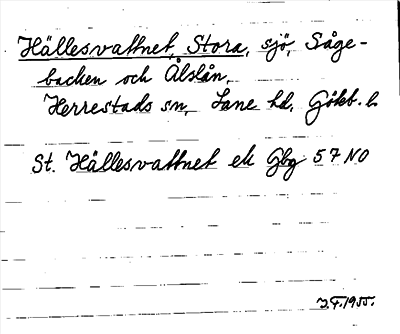 Hällesvattnet, Stora, sjö, Såge-
backen och Ålslån,
Herrestads sn, Lane hd, Göteb. l.
St. Hällesvattnet ek Gbg 57 NO
J.F. 1955.